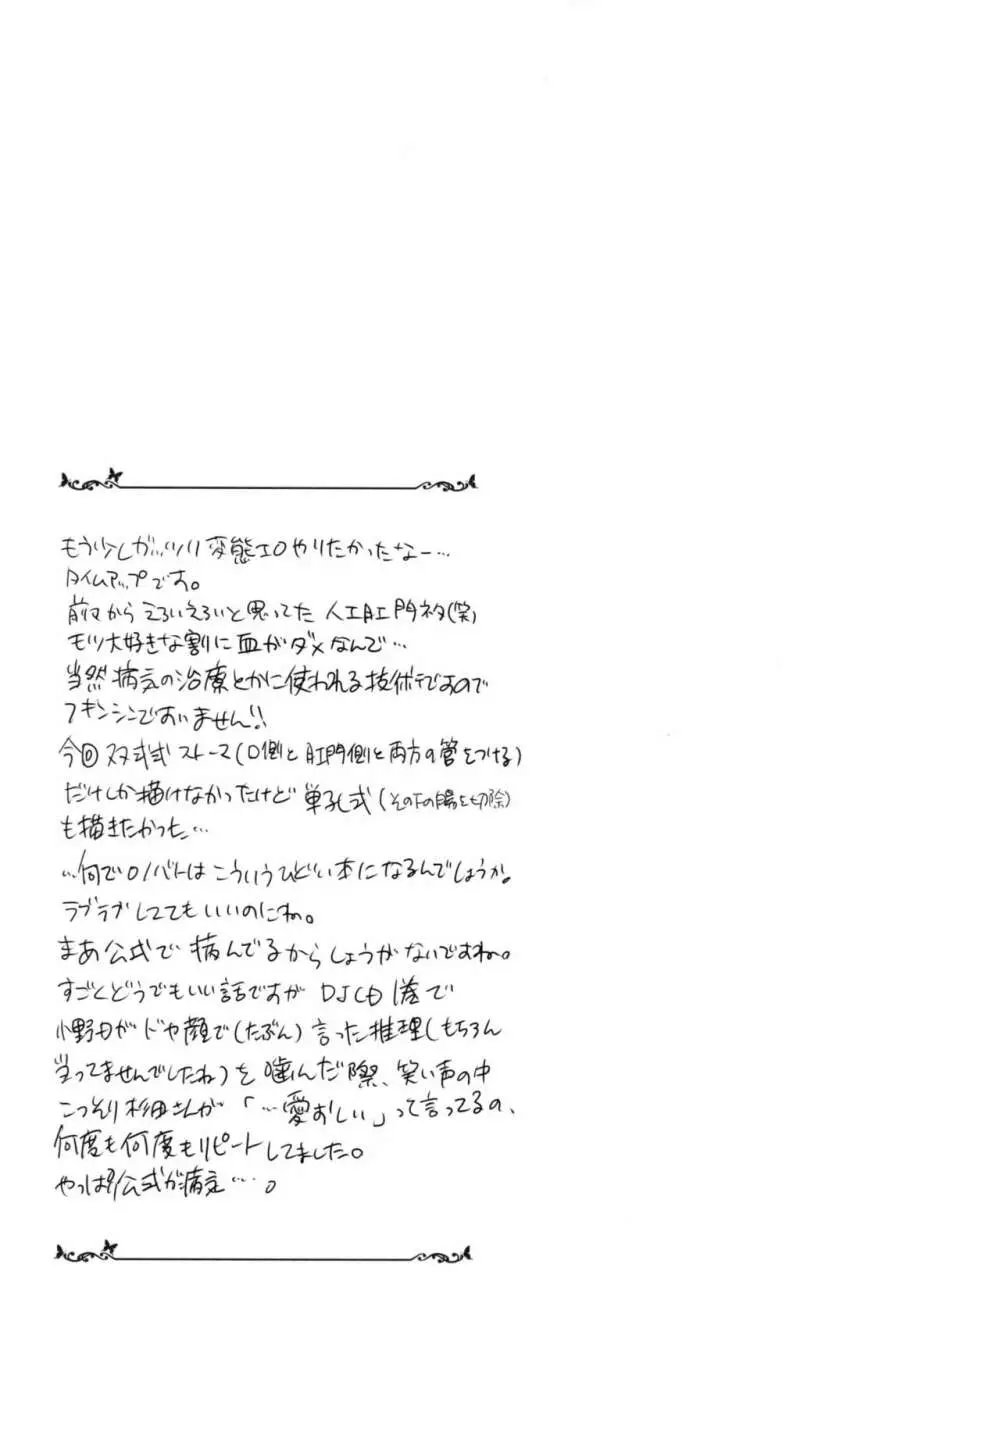 もう少しガッツリ変態エロやりたかったなー…
タイムアップです。
前々からえろいえろいと思ってた 人工肛門ネタ(笑)
モツ大好きな割に血がダメなんで…
当然病気の治療とかに使われる技術ですので
フキンシンですいません!!
今回 双式 ストーマ(口側と肛門側と両方の管をつける)
だけしか描けなかったけど 単孔式(その下の腸を切除)
も描きたかった…
…何でロノバトはこういうひどい本になるんでしょうか。
ラブラブしててもいいのにね。
まあ公式で病んでるからしょうがないですね。
すごくどうでもいい話ですが DJCD 1巻で
小野田がドヤ顔で(たぶん)言った推理(もちろん
当ってませんでしたね)を噛んだ際、笑い声の中
こっそり杉田さんが「…愛おしい」って言ってるの、
何度も何度もリピートしてました。
やっぱ公式が病…。